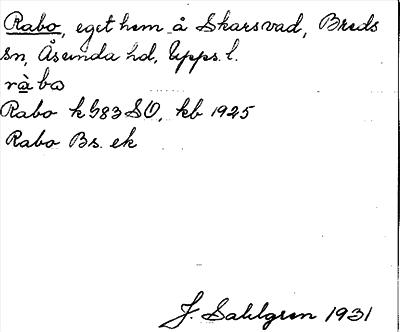 Rabo, eget hem å Skarsvad, Breds
sn, Åsunda hd, Upps. l.
ràbo
Rabo k 983 SO, kb 1925
Rabo Bs. ek
J. Sahlgren 1931